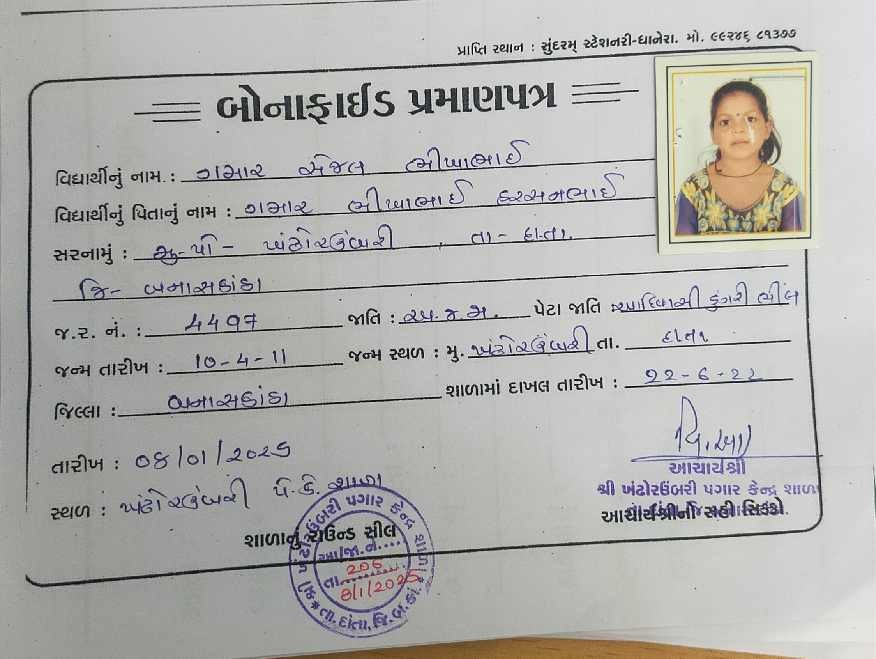 પ્રાપ્તિ સ્થાન : સુંદરમ્ સ્ટેશનરી-ધાનેરા. મો. ૯૯૨૪૬ ૮૧૩૭૭
બોનાફાઈડ પ્રમાણપત્ર
વિદ્યાર્થીનું નામ. : ગમાર સેજલ ભીખાભાઈ
વિદ્યાર્થીનું પિતાનું નામ : ગમાર ભીખાભાઈ કરસનભાઈ
સરનામું : મુ-પો - ખંઢોરઉંબરી, તા- દાંતા.
જિ- બનાસકાંઠા
જ.ર. નં. : 4497 જાતિ : અ.જ.જા. પેટા જાતિ આદિવાસી ડુંગરી ભીલ
જન્મ તારીખ : 10-4-11 જન્મ સ્થળ : મુ. ખંઢોરઉંબરી તા. દાંતા
જિલ્લા : બનાસકાંઠા શાળામાં દાખલ તારીખ : 22-6-22
તારીખ : ૦૪/૦૧/૨૦૨૬
સ્થળ : ખંઢોરઉંબરી પે.કે. શાળા
આચાર્યશ્રી
શ્રી ખંઢોરઉંબરી પગાર કેન્દ્ર શાળા
આચાર્યશ્રીની સહી સિક્કો.
શાળાનું રાઉન્ડ સીલ
ખંઢોરઉંબરી પગાર કેન્દ્ર શાળા
આ/જા.નં....
206
તા.........
8/1/2026
તા.દાંતા, જિ.બ.કાં.